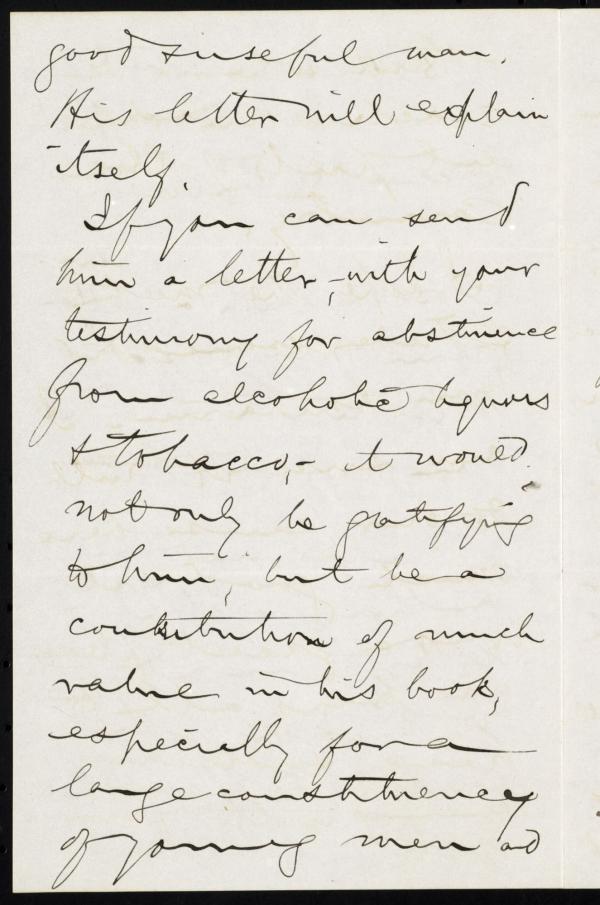 good & useful man.
His letter will explain
itself.
If you can send
him a letter, with your
testimony for abstinence
from alcoholic liquors
& tobacco,- it would
not only be gratifying
to him, but be a
contribution of much
value in his book,
especially for a
large constituency
of young men and